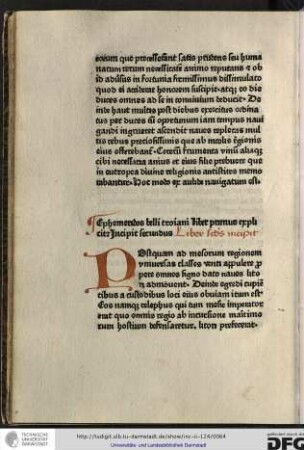 eorum que processerant satis prudens seu huma
narum rerum necessitatis animo reputans et ob
id aduersus in fortunia firmissimus dissimulato
quod ei acciderat honorem suscipit atque eo die
duces omnes ad se in conuiuium deducit De
inde haut multis post diebus exercitus ordina
tus per duces cum oportunum iam tempus naui
gandi ingrueret ascendit naues repletas multis
rebus preciosissimis que ab incolis regionis
eius offerebant Ceterum frumenta vinum aliique
cibi necessaria anius et eius filie prebuere que
in
diuine religionis antistites memo
rabantur Hoc modo ex aulide nauigatum est
Ephemeridos belli troiani liber primus expli
cit Incipit secundus Liber secundus incipit
POstquam ad mesorum regionem
vniuersas classes venti appulere pro
pere omnes signo dato naues lito
ri admouent Deinde egredi cupien
tibus a custodibus loci eius obuiam itum est
Eos namque telephus qui tum misie imperator
erat quo omnis regio ab incursione maritimo
rum hostium defensaretur litori prefecerat
TECHNISCHE
UNIVERSITÄT
DARMSTADT
http://tudigit.ulb.tu-darmstadt.de/show/inc-ii-124/0064
Universitäts- und Landesbibliothek Darmstadt
gefördert durch die
DFG